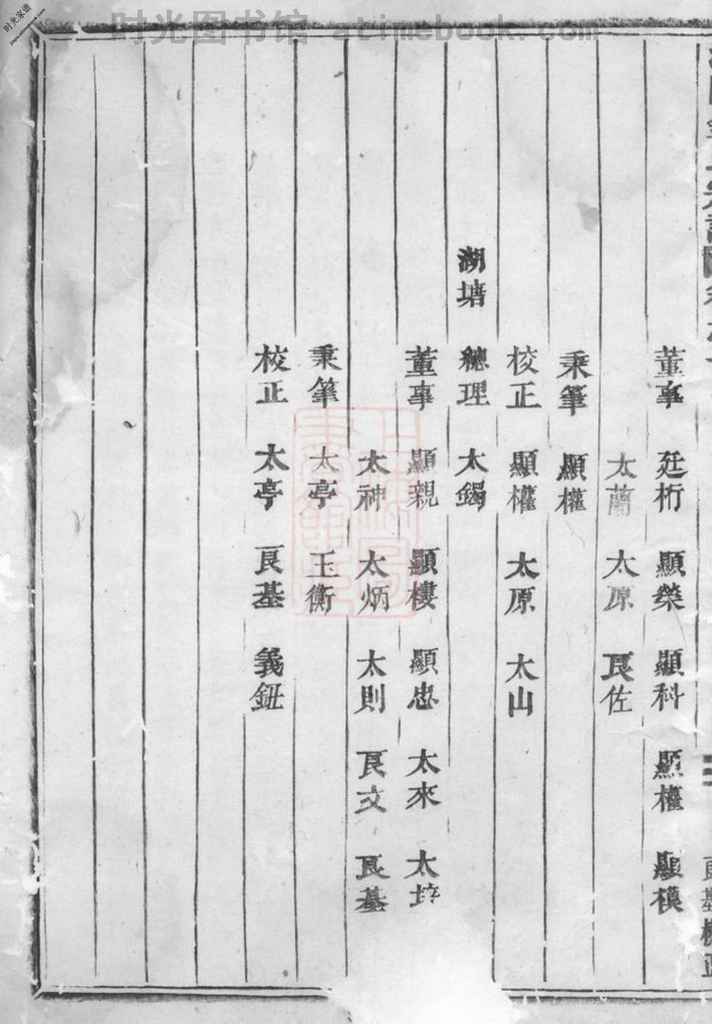 董事 廷桁 顯榮 顯科 顯權 顯模
太蘭 太原 良佐
秉筆 顯權
校正 顯權 太原 太山
湖塘 總理 太鍚
董事 顯親 顯樓 顯忠 太來 太培
太神 太炳 太則 良文 良基
秉筆 太亭 玉衡
校正 太亭 良基 義鈕
时光图书馆 atimebook.com
时光家谱